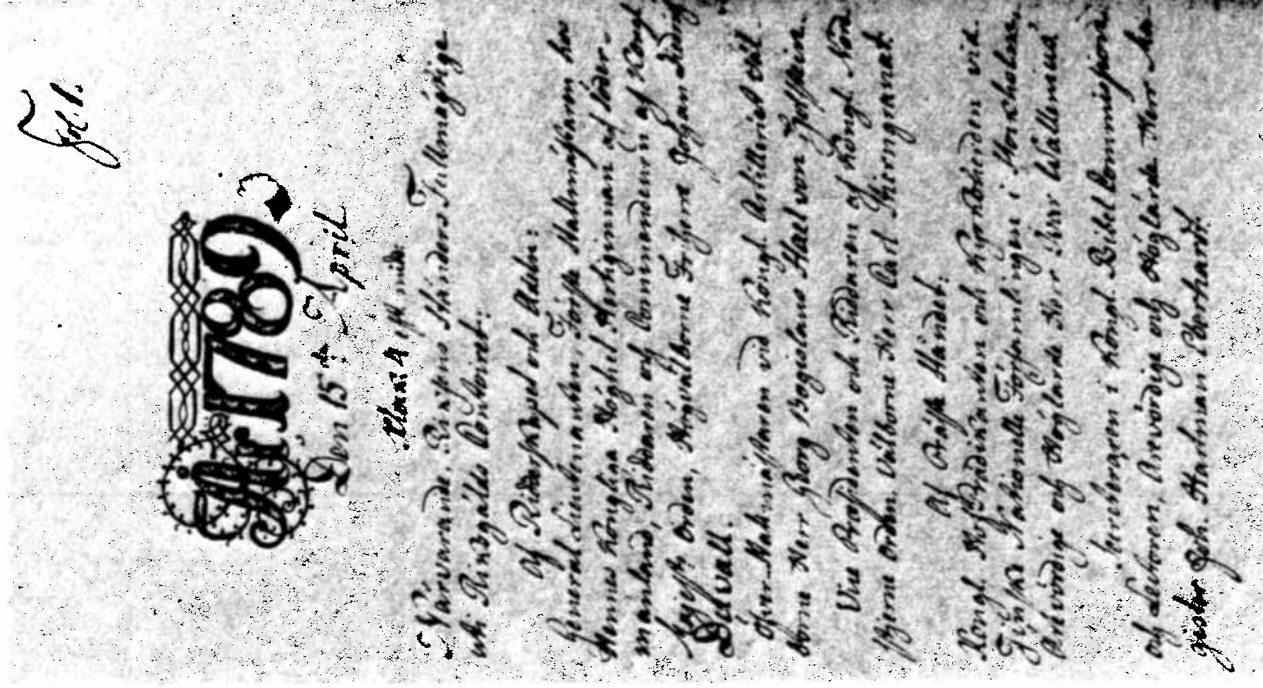 Fol. 1.
År 1789
Den 15 de April
Klock: 4 eft. mid.
Närvarande Riksens Ständers Fullmägtige
uti Riksgälds Contoiret:
Af Ridderskapet och Adeln:
General Lieutenanten, Förste Hallmästaren hos
Hennes Kongliga Höghet Hertiginnan af Söder-
manland, Riddaren och Commendeuren af Kongl.
Orden, Högvälborne Frih:
Öfver- vid Kongl. Artilleriet Väl-
borne Herr Georg Bogislaus Stael von Holstein
Vice Presidenten och Riddaren af Kongl. Nord
stjerne Orden Välborne Herr Carl
Af Präste Ståndet.
Kongl. Hof Predikanten och Kyrkoherden vid
Finska Nationella Församlingen i Stockholm,
Ärevördige och Höglärde Herr
Kyrkoherden i Kongl. Bibel Commissionen
och Ledvorn, Ärevördige och Höglärde Herr Ma-
gister Joh. Hartman Eberhardt.